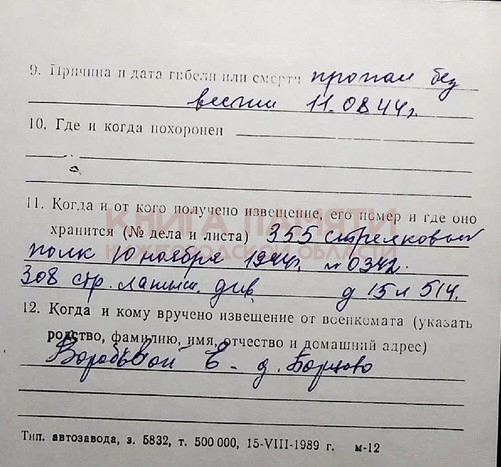 9. Причина и дата гибели или смерти пропал без
вести 11.08.44г.
10. Где и когда похоронен
11. Когда и от кого получено извещение, его номер и где оно
хранится (№ дела и листа) 355 стрелковый
полк 10 ноября 1944г. №0342.
308 стр. латыш. див. д 15 л 514.
12. Когда и кому вручено извещение от военкомата (указать
родство, фамилию, имя, отчество и домашний адрес)
Воробьевой Е - д.
Тип. автозавода, з. 5832, т. 500 000, 15-VIII-1989 г. м-12
КНИГА ПАМЯТИ
НИЖЕГОРОДСКОЙ ОБЛАСТИ